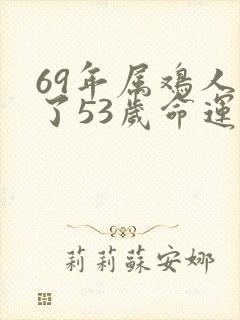 69年属鸡人
了53歲命運
莉莉蘇安娜